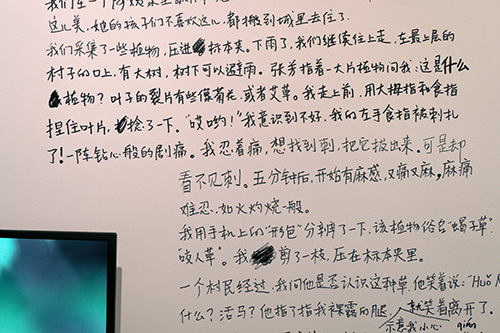 我们在一个
这儿美，她的孩子们不喜欢这儿，都搬到城里去住了.
我们采集了一些植物，压进标本夹。下雨了，我们继续往上走，在最上层的
村子的口上，有大树，树下可以避雨。张芳指着一大片植物问我：这是什么
植物？叶子的裂片有些像菊花，或者艾草。我走上前，用大拇指和食指
捏住叶片，捻了一下。“哎哟！”我意识到不好，我的左手食指被刺扎
了！一阵钻心般的剧痛。我忍着痛，想找到刺，把它拔出来。可是却
看不见刺。五分钟后，开始有麻感，又痛又麻，麻痛
难忍，如火灼烧一般。
我用手机上的“形色”分辨了一下，该植物俗名“蝎子草”
“咬人草”。我剪了一枝，压在标本夹里。
一个村民经过，我问他是否认识这种草，他笑着说：“Huǒ
什么？活马？他指了指我裸露的腿，就笑着离开了.
示意我小心 qián